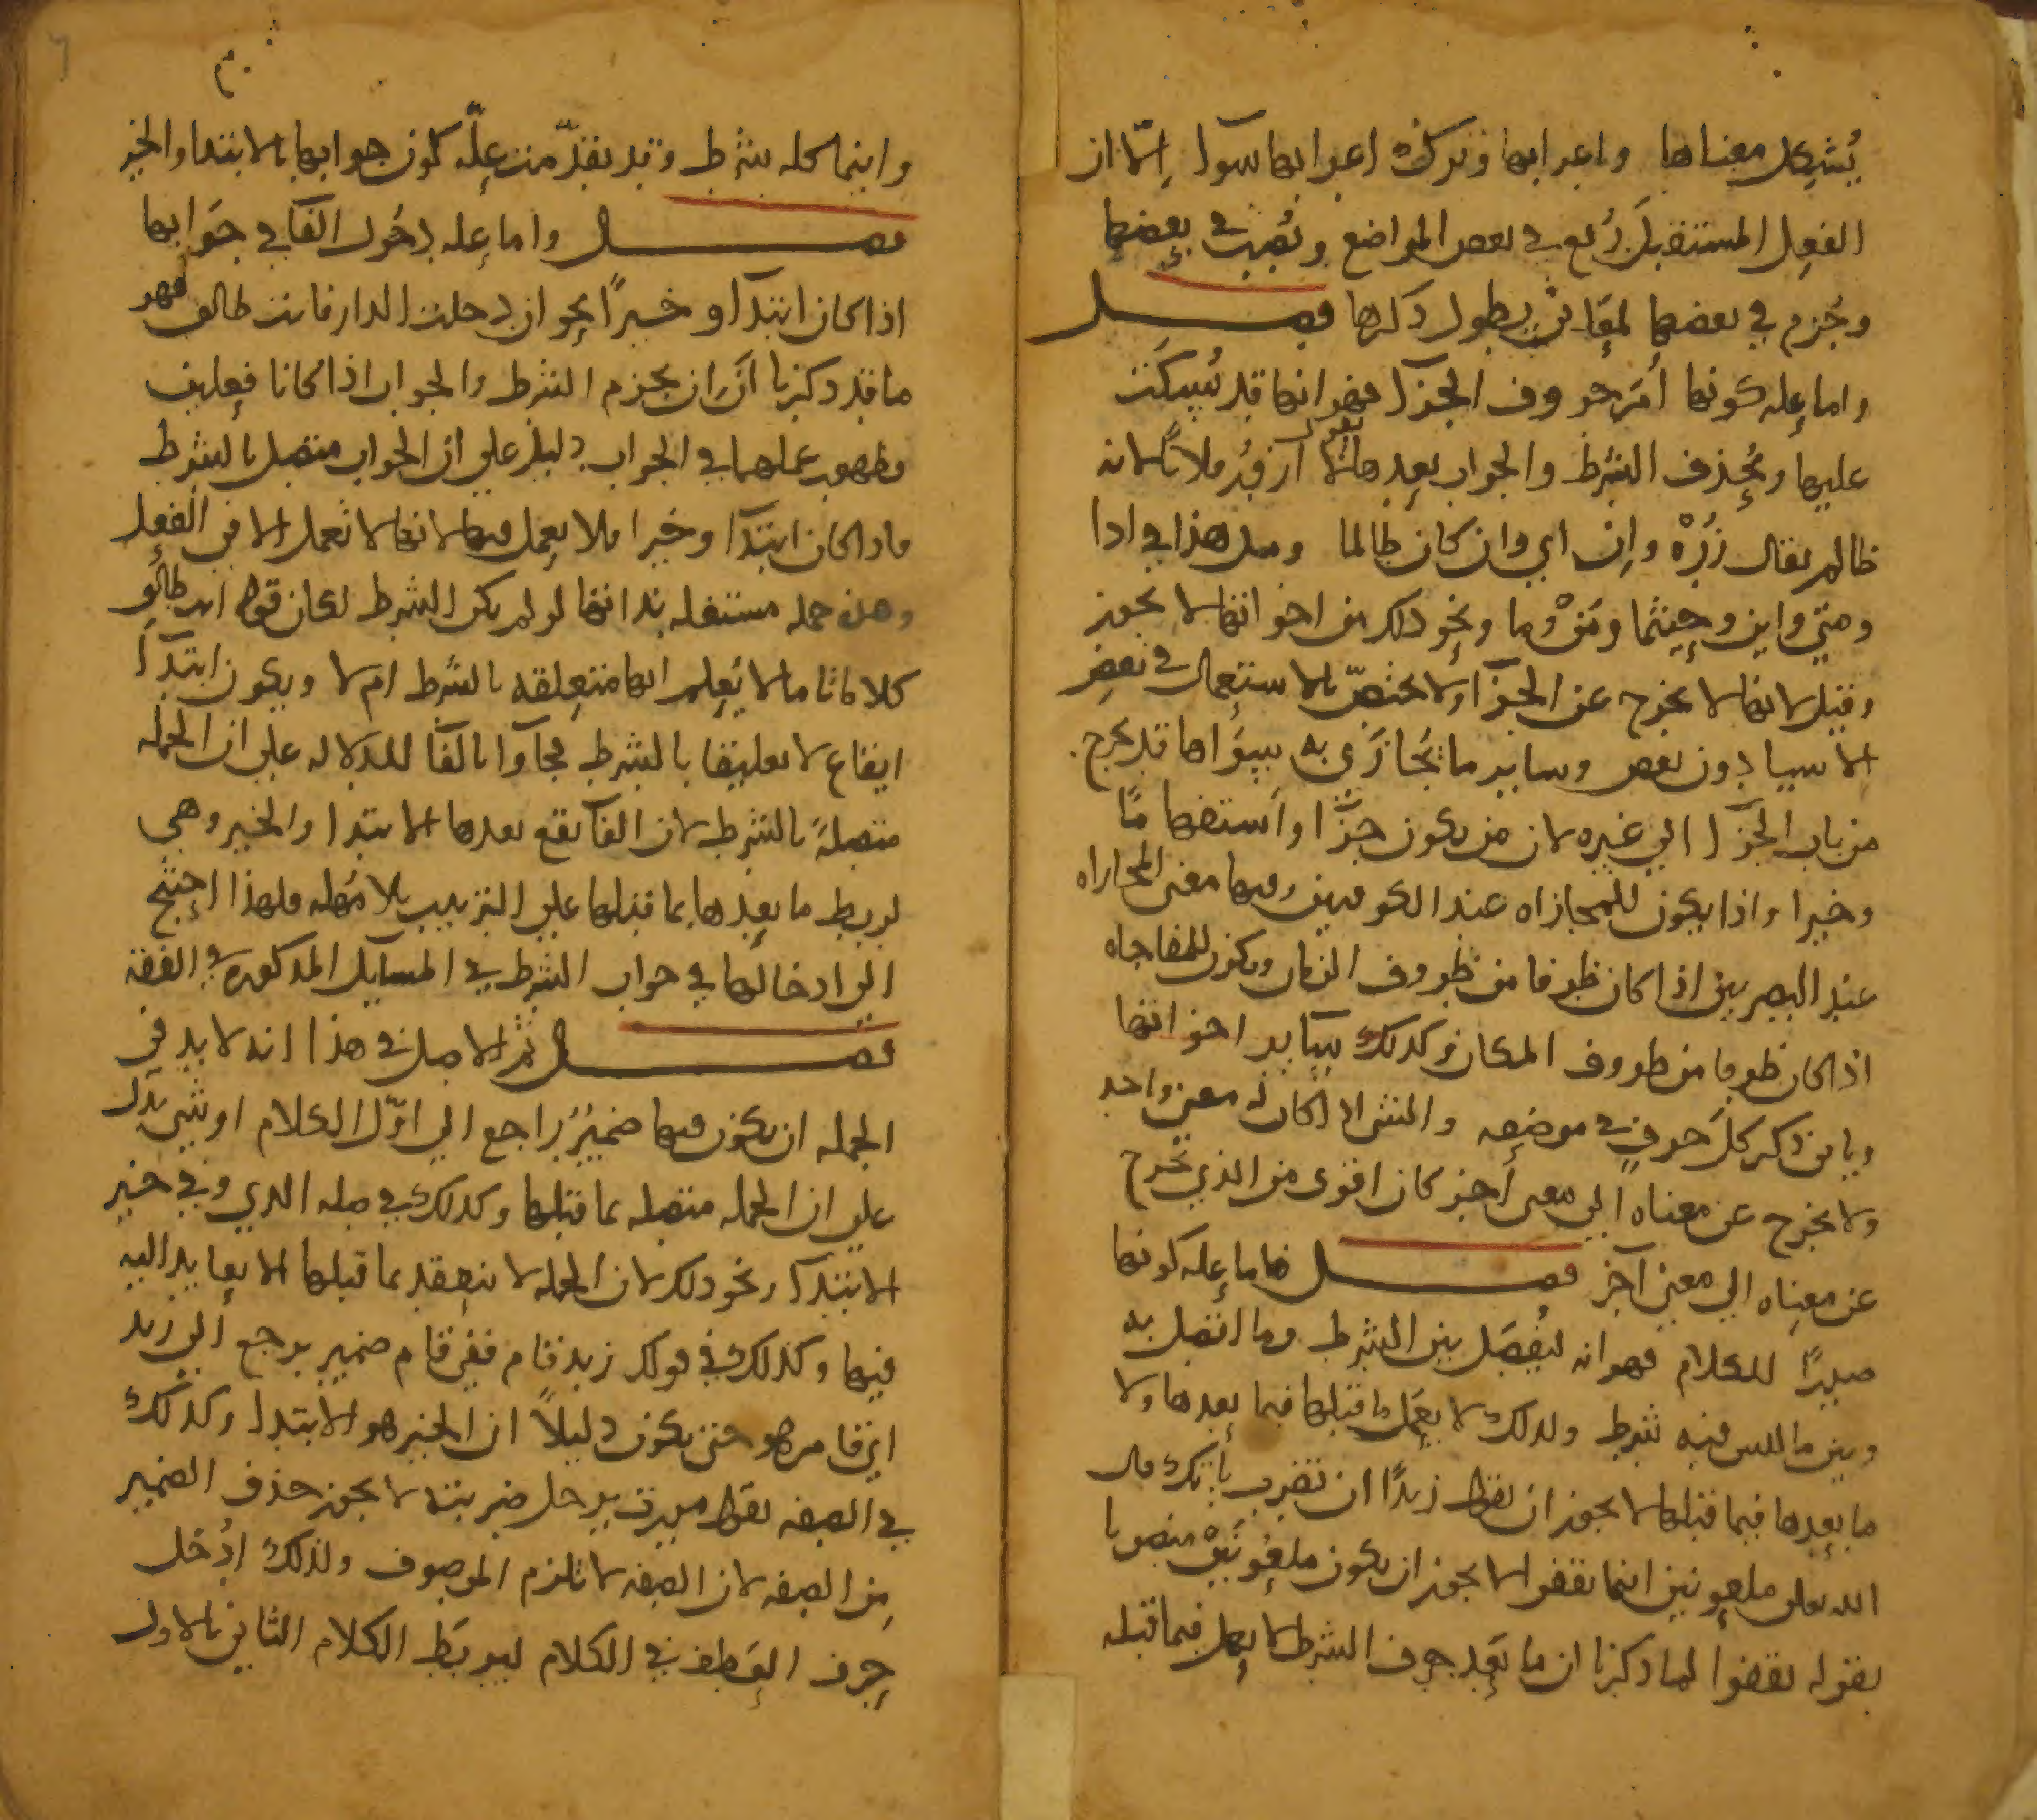 يُشكل معناها واعرابها وترك اعرابها سوآ إلّا ان
الفعل المستقبل رُفع في بعض المواضع ونُصِب في بعضها
وجُزم في بعضها لمعانٍ يطول ذكرها فصل
واما علة كونها أم حروف الجزآ فهو انها قد يُسكت
عليها ويُحذف الشرط والجواب بعدها يقول لا آزرُ فلاناً لانه
ظالم يقال زُرْهُ وإن اي وان كان ظالما ومثل هذا في اذا
ومتى واين وحيثما ومَنْ وما ونحو ذلك من اخواتها لا يجوز
وقيل لانها لا تخرج عن الجزآ ولا تختصّ بالاستعمال في بعض
الاشيا دون بعض وساير ما يُجازَى به سِوَاها قد يخرج
من باب الجزآ الى غيره لان من يكون جزآ واستفهامًا
وخبرا واذا يكون للمجازاه عند الكوفيين وفيها معنى المجازاه
عند البصريين اذا كان ظرفا من ظروف الزمان ويكون للمفاجاه
اذا كان ظرفا من ظروف المكان وكذلك ساير اخواتها
وياتي ذكر كل حرف في موضعه والشي اذا كان له معنى واحد
ولا يخرج عن معناه الى معنى آخر كان اقوى من الذي يخرج
عن معناه الى معنى آخر فصل فاما علة كونها
صدرًا للكلام فهو انه ليُفصَل بين الشرط وما اتصل به
وبين ما ليس فيه شرط ولذلك لا يعمل ما قبلها فيما بعدها ولا
ما بعدها فيما قبلها لا يجوز ان تقول زيدًا ان تضرب يأتك قال
الله تعالى ملعونين اينما ثقفوا لا يجوز ان يكون ملعونين منصوبا
بقوله ثقفوا لما ذكرنا ان ما بعد حرف الشرط لا يعمل فيما قبله
واينما كله شرط وقد تقدّمت علّة كون جوابها بالابتدا والخبر
فصل واما علة دخول الفا في جوابها
اذا كان ابتدآ وخبرًا نحو ان دخلت الدار فانت طالق فهو
ما قد ذكرنا انّ ان تجزم الشرط والجواب اذا كانا فعلين
وظهور عملهما في الجواب دليل على ان الجواب متصل بالشرط
فاذا كان ابتدآ وخبرا فلا يعمل فيها لانها لا تعمل الا في الفعل
وهذه جملة مستقلة بذاتها لو لم يكن الشرط لكان قوله انت طالق
كلاما تاما لا يُعلم انها متعلقة بالشرط ام لا ويكون ابتدآ
ايقاع لا تعليقا بالشرط فجآوا بالفآ للدلالة على ان الجملة
متصلةً بالشرط لان الفآ يقع بعدها الابتدا والخبر وهي
لربط ما بعدها بما قبلها على الترتيب بلا مُهلة ولهذا احتيج
الى ادخالها في جواب الشرط في المسايل المذكوره في الفقه
فصل ثم الاصل في هذا انه لا بد في
الجمله ان يكون فيها ضميرُ راجع الى اوّل الكلام او شي يدل
على ان الجملة متصلة بما قبلها وكذلك في صلة الذي وفي خبر
الابتدآ ونحو ذلك لان الجمله لا تنعقد بما قبلها الا بعايد اليه
فيها وكذلك في قولك زيد قام ففي قام ضمير يرجع الى زيد
اي قام هو حتى يكون دليلاً ان الخبر هو الابتدا وكذلك
في الصفه تقول مررت برجل ضربته لا يجوز حذف الضمير
من الصفه لان الصفه لا تلزم الموصوف ولذلك أُدخل
حرف العطف في الكلام ليربَط الكلام الثاني بالاول